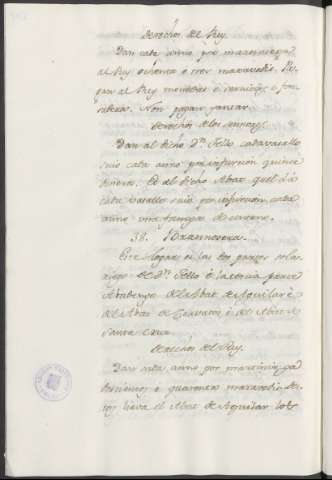 derechos del Rey.
Dan cada anno por marzoniega
al Rey ochenta e tres maravedis. Pa
gan al Rey monedas e servicios e fon
sadera. Non pagan yantar
derechos de los sennores
Dan al dicho Dn. Tello cada vasallo
suio cada anno por infurcion quince
dineros. Ed al dicho Abat quel dá
cada vasallo suio por infurcion cada
anno una fanega de
38. Brannosera.
Este Logar es las dos partes
de Dn. Tello e la tercia parte
del Abat de Aguilar è
del Abat de è del Abat de
Santa Cruz
derechos del Rey.
Dan cada anno por martiniega
e quarenta maravedis des
tos lieva el Abat de Aguilar los